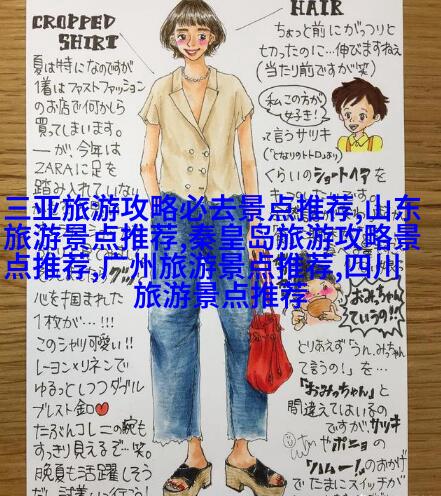 CROPPED
SHIRT
夏は特になのですが
1着はファストファッション
のお店で何かしら
買ってしまいます。
ーが、今年は
ZARAに足を
踏み入れていない
HAIR
ちょっと前にがっつりと
七刀ったのに…伸びますねぇ
(当たり前ですが笑)
私この方が
女子き!
って言うサツキ
(「となりのトトロ」より)
くらいのショートヘアを
三亚旅游攻略必去景点推荐,山东
旅游景点推荐,秦皇岛旅游攻略景
点推荐,广州旅游景点推荐,四川
旅游景点推荐
心を掴まれた
1枚が…!!!
このシャツ可愛い!!
レーヨン×リネンで
ゆるっとしつつダブル
ブレスト釦♥
たぶんコレ二の腕も
すっきり見えるぞ…笑。
晩夏も活躍しそう
おみっちゃん
ていうの!!
とりあえず「うん、みちゃん
て言うの!」を…
「おみっちゃん」と
間違えてはいるの
ですが、サツキ
やポニョの
「ハムー!」のおかげ
で たまにスイッチが